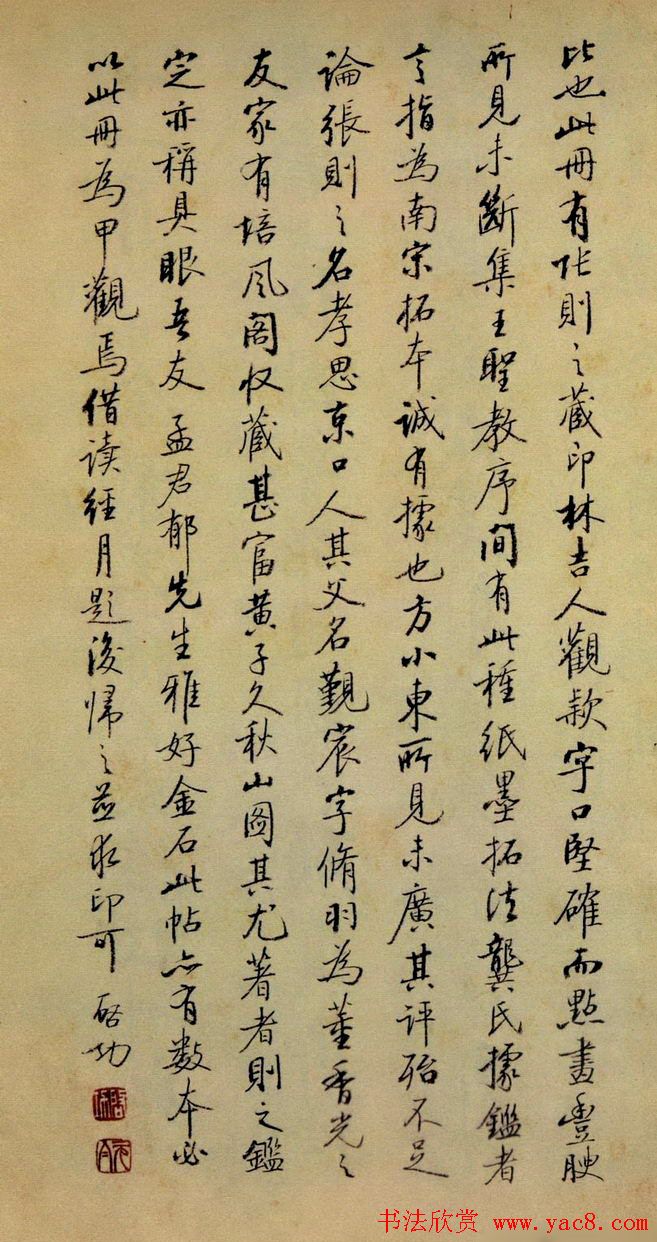 比也此冊有張則之藏印林吉人觀款字口堅確而點畫豐腴
所見未斷集王聖教序間有此種紙墨拓法龔氏據鑑者
言指為南宋拓本誠有據也方小東所見未廣其評殆不足
論張則之名孝思京口人其父名覲宸字脩羽為董香光之
友家有培風閣收藏甚富黃子久秋山圖其尤著者則之鑑
定亦稱具眼吾友孟君郁先生雅好金石此帖亦有數本必
以此冊為甲觀焉借读經月題後歸之並求印可 啓功
啓功
元白
书法欣赏 www.yac8.com